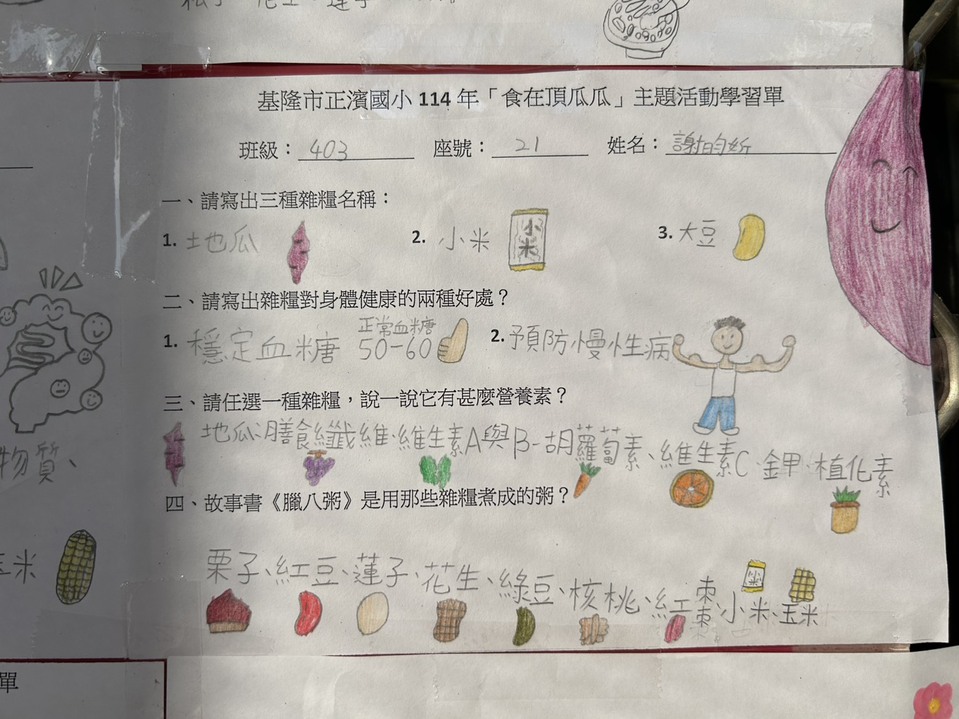 基隆市正濱國小 114 年「食在頂瓜瓜」主題活動學習單
班級：403 座號：21 姓名：謝昀妡
一、請寫出三種雜糧名稱：
1. 地瓜 2. 小米 小米 3. 大豆
二、請寫出雜糧對身體健康的兩種好處？
1. 穩定血糖 正常血糖 50-60 2. 預防慢性病
三、請任選一種雜糧，說一說它有甚麼營養素？
地瓜:膳食纖維、維生素A與β-胡蘿蔔素、維生素C、鉀、植化素
物質、
四、故事書《臘八粥》是用那些雜糧煮成的粥？
玉米
栗子、紅豆、蓮子、花生、綠豆、核桃、紅棗、小米、玉米
小米
單